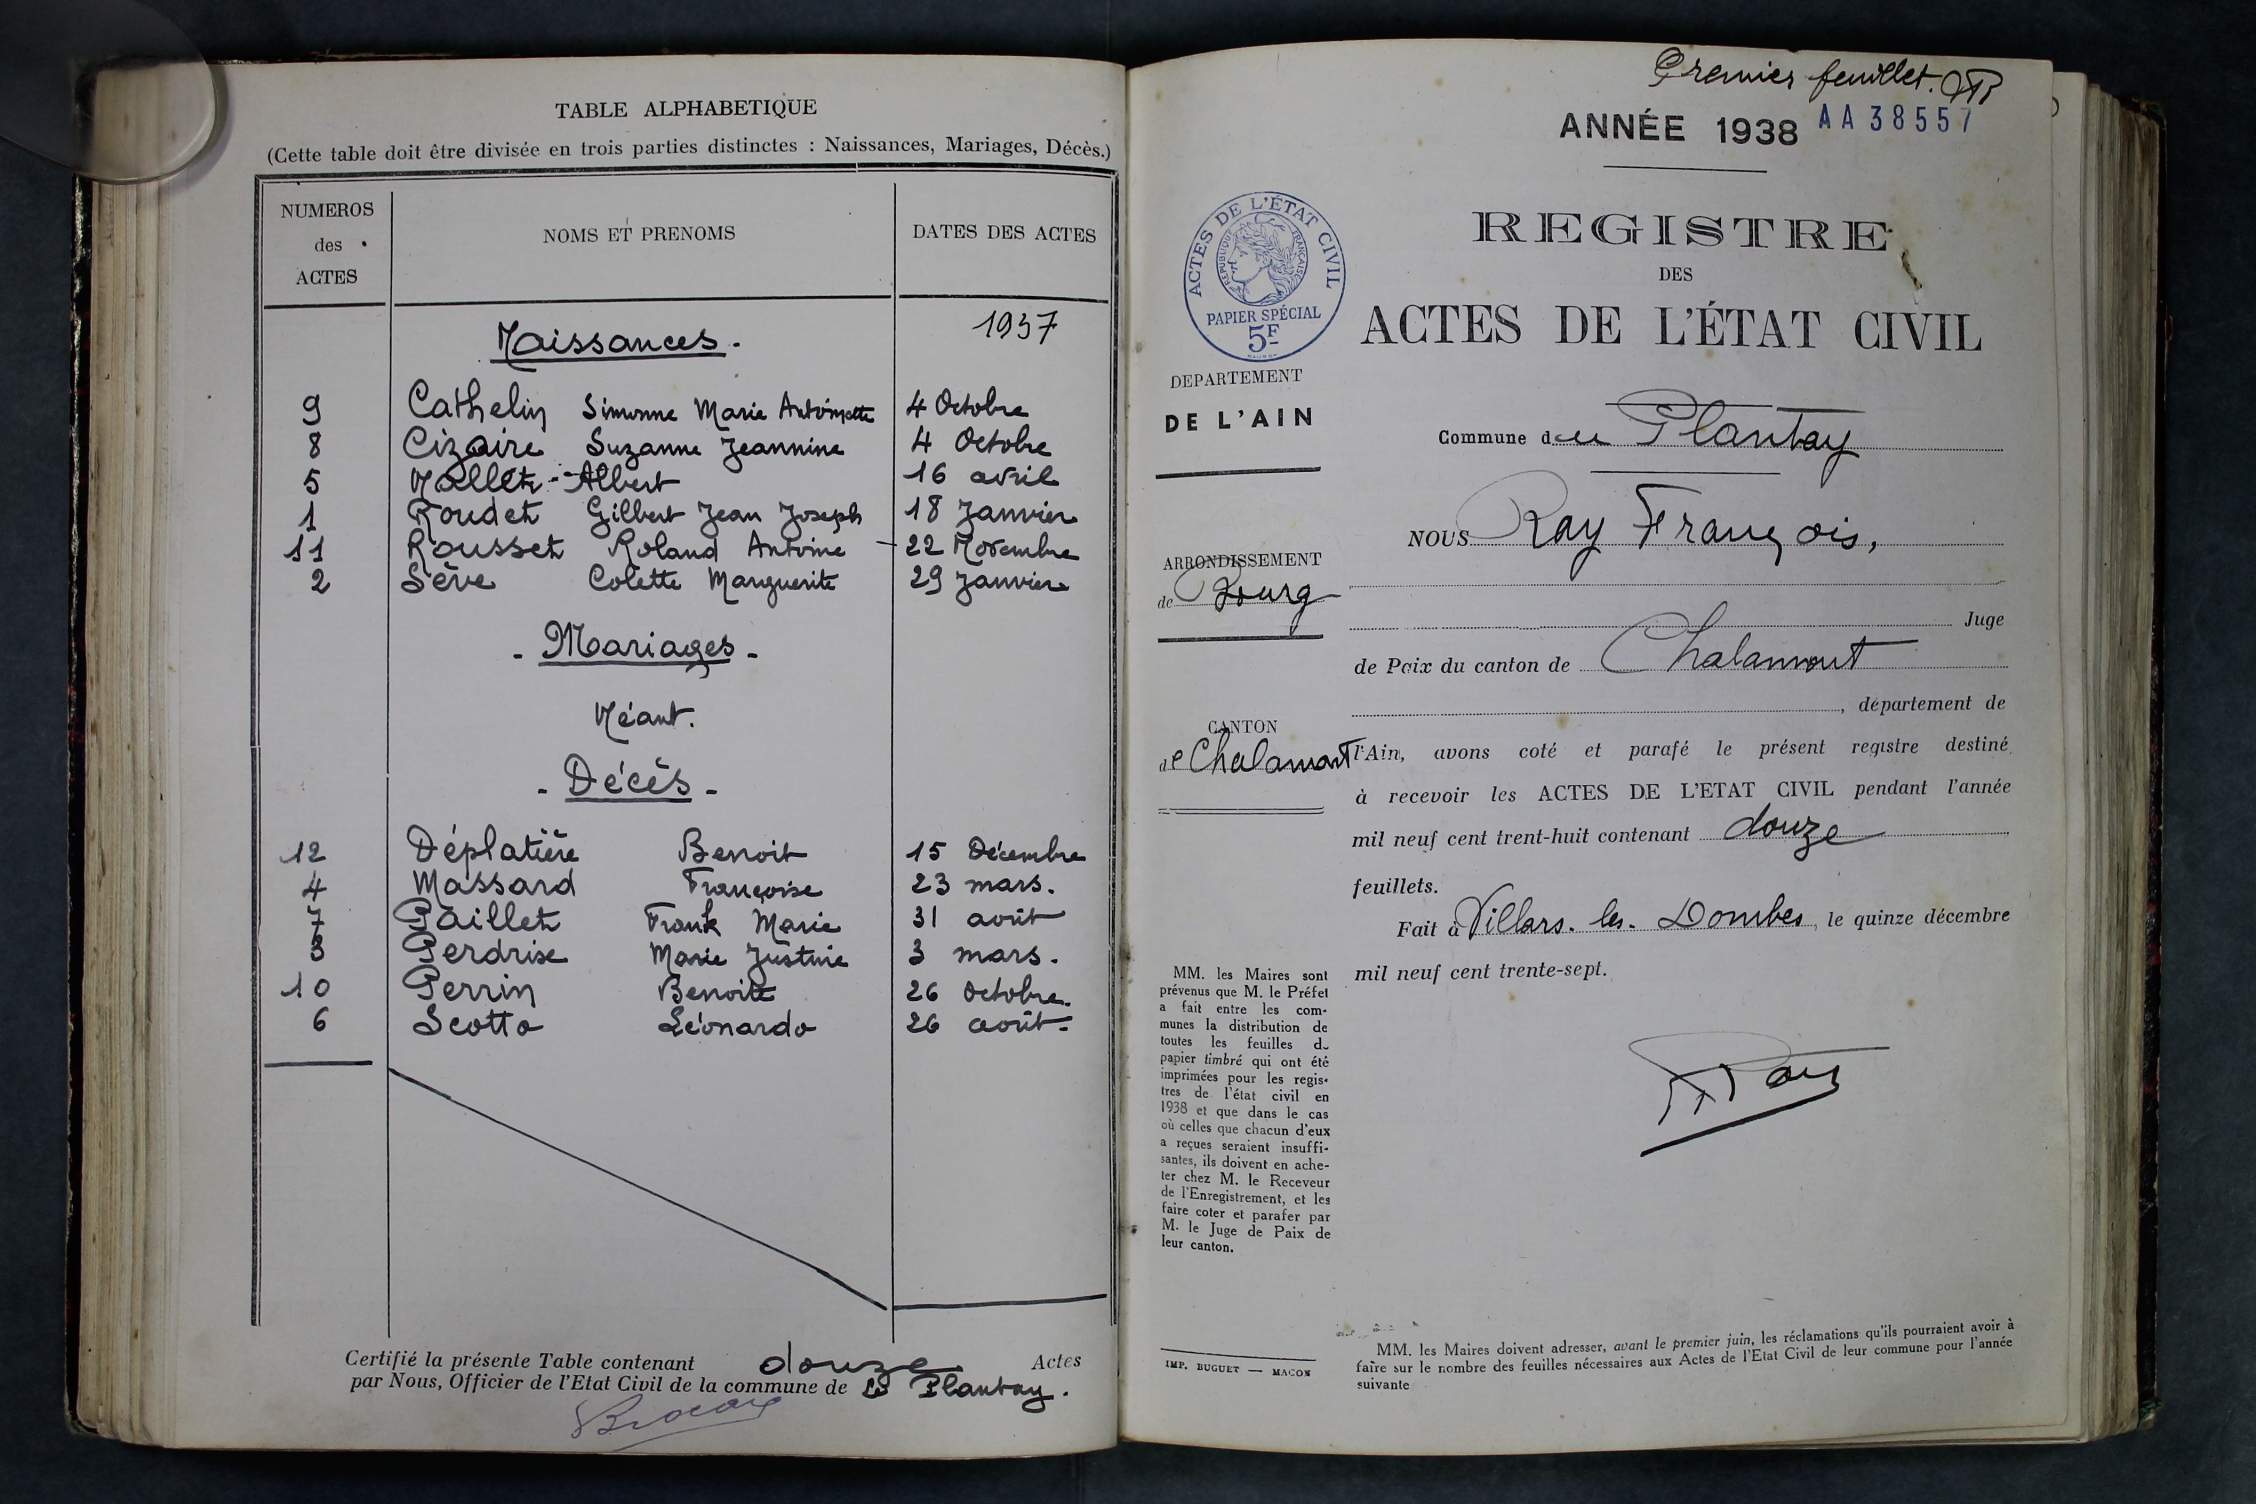 TABLE ALPHABETIQUE
(Cette table doit être divisée en trois parties distinctes : Naissances, Mariages, Décès.)
NUMEROS des ACTES NOMS ET PRENOMS DATES DES ACTES
Naissances. 1937
9 Cathelin Simonne Marie Antoinette 4 Octobre
8 Cizaire Suzanne Jeannine 4 Octobre
5 Albert 16 avril
1 Roudet Gilbert Jean Joseph 18 Janvier
11 Rousset Roland Antoine 22 Novembre
2 Sève Colette Marguerite 29 Janvier
- Mariages -
Néant.
- Décès -
12 Déplatière Benoit 15 Décembre
4 Massard Françoise 23 mars.
7 Paillet Frank Marie 31 août
3 Perdrise Marie Justine 3 mars.
10 Perrin Benoite 26 Octobre.
6 Scotto Léonardo 26 août -
Certifié la présente Table contenant douze Actes
par Nous, Officier de l'Etat Civil de la commune de Le Plantay.
Premier feuillet.
ANNÉE 1938 AA38557
REGISTRE
DES
ACTES DE L'ÉTAT CIVIL
ACTES DE L'ÉTAT CIVIL
RÉPUBLIQUE FRANÇAISE
PAPIER SPÉCIAL
5F
DEPARTEMENT
DE L'AIN
Commune du Plantay
ARRONDISSEMENT
de Bourg
CANTON
de Chalamont
NOUS Ray François,
Juge
de Paix du canton de Chalamont
, département de
l'Ain, avons coté et parafé le présent registre destiné
à recevoir les ACTES DE L'ETAT CIVIL pendant l'année
mil neuf cent trent-huit contenant douze
feuillets.
Fait à Villars-les-Dombes, le quinze décembre
mil neuf cent trente-sept.
F Ray
MM. les Maires sont
prévenus que M. le Préfet
a fait entre les com-
munes la distribution de
toutes les feuilles du
papier timbré qui ont été
imprimées pour les regis-
tres de l'état civil en
1938 et que dans le cas
où celles que chacun d'eux
a reçues seraient insuffi-
santes, ils doivent en ache-
ter chez M. le Receveur
de l'Enregistrement, et les
faire coter et parafer par
M. le Juge de Paix de
leur canton.
IMP. BUGUET — MACON
MM. les Maires doivent adresser, avant le premier juin, les réclamations qu'ils pourraient avoir à
faire sur le nombre des feuilles nécessaires aux Actes de l'Etat Civil de leur commune pour l'année
suivante